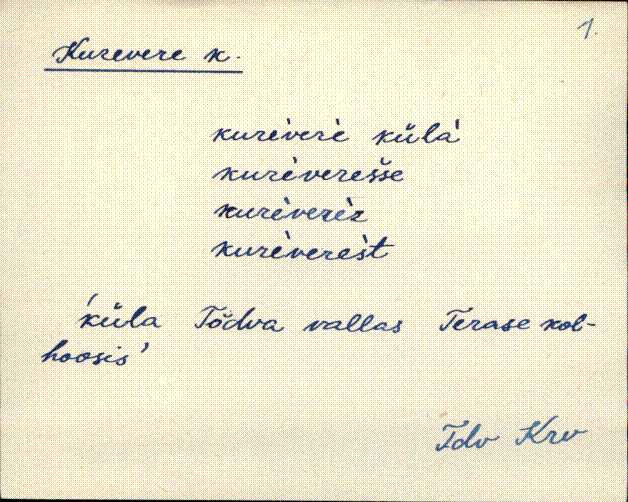 1.
Kurevere k.
kurèverè külà
kurèverešše
kurèverèz
kurèverèst
'küla Tõdva vallas Terase kol-
hoosis'
Tdv Krv